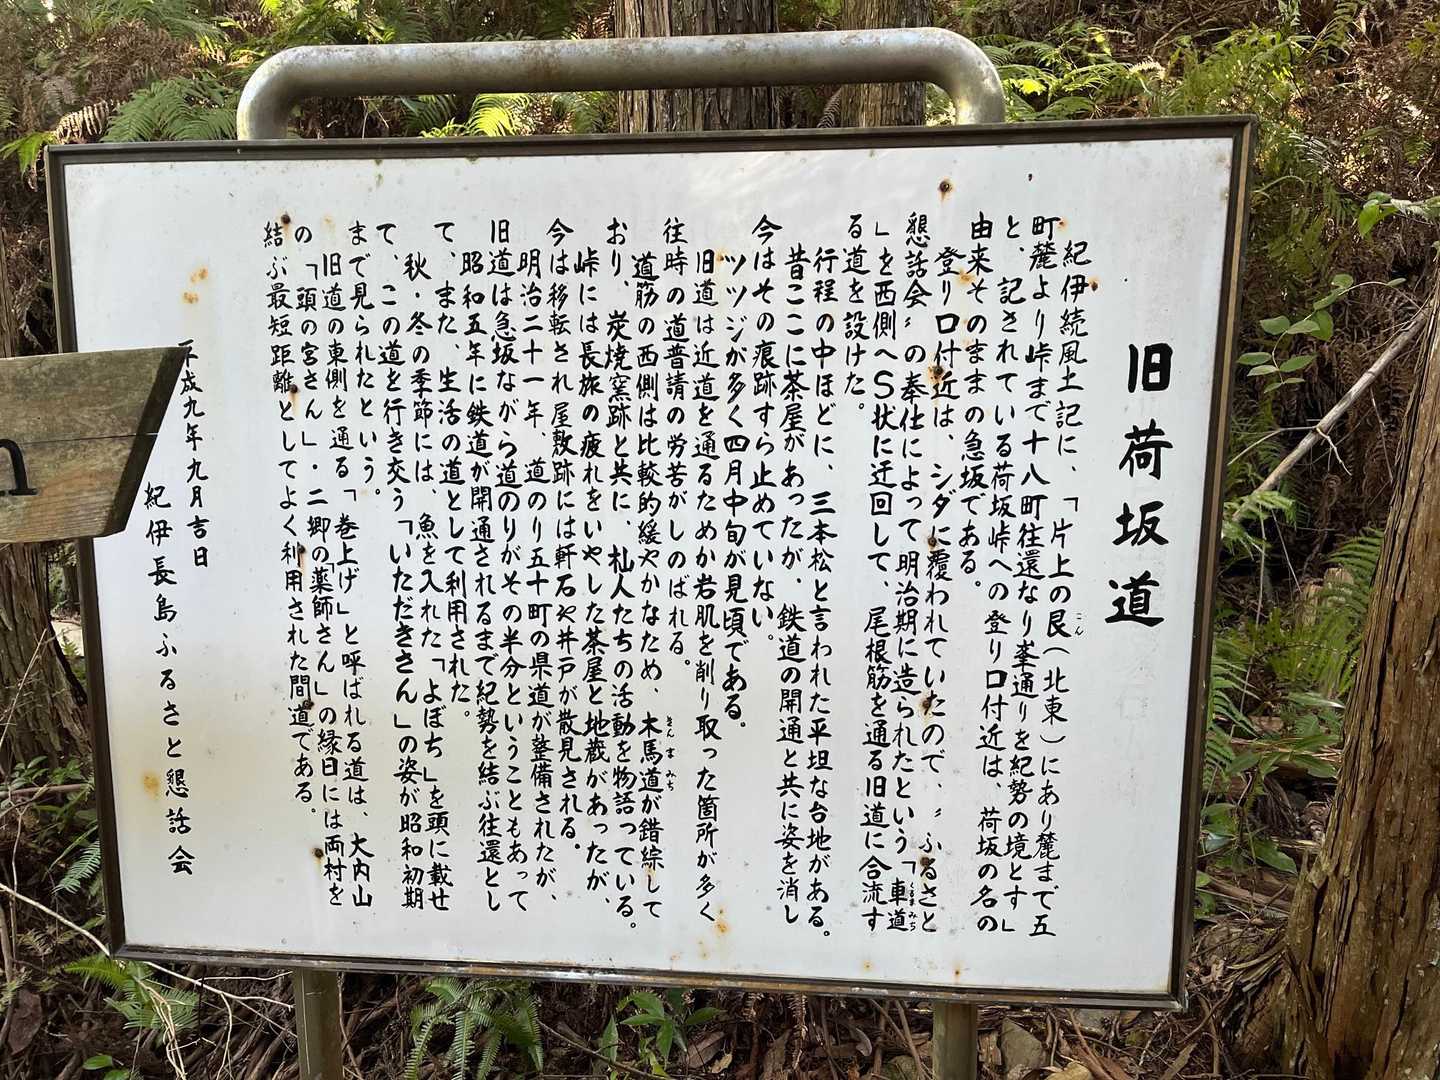 旧荷坂道
紀伊続風土記に、「片上の艮（北東）にあり麓まで五
町麓より峠まで十八町往還なり峯通りを紀勢の境とす」
と、記されている荷坂峠への登り口付近は、荷坂の名の
由来そのままの急坂である。
登り口付近は、シダに覆われていたので、〝ふるさと
懇話会〟の奉仕によって明治期に造られたという「車道
」を西側へS状に迂回して、尾根筋を通る旧道に合流す
る道を設けた。
行程の中ほどに、三本松と言われた平坦な台地がある。
昔ここに茶屋があったが、鉄道の開通と共に姿を消し
今はその痕跡すら止めていない。
ツツジが多く四月中旬が見頃である。
旧道は近道を通るためか岩肌を削り取った箇所が多く
往時の道普請の労苦がしのばれる。
道筋の西側は比較的緩やかなため、木馬道が錯綜して
おり、炭焼窯跡と共に、杣人たちの活動を物語っている。
峠には長旅の疲れをいやした茶屋と地蔵があったが、
今は移転され屋敷跡には軒石や井戸が散見される。
明治二十一年、道のり五十町の県道が整備されたが、
旧道は急坂ながら道のりがその半分ということもあって
昭和五年に鉄道が開通されるまで紀勢を結ぶ往還とし
て、また、生活の道として利用された。
秋・冬の季節には、魚を入れた「よぼち」を頭に載せ
て、この道を行き交う「いただきさん」の姿が昭和初期
まで見られたという。
旧道の東側を通る「巻上げ」と呼ばれる道は、大内山
の「頭の宮さん」・二郷の「薬師さん」の縁日には両村を
結ぶ最短距離としてよく利用された間道である。
平成九年九月吉日
紀伊長島ふるさと懇話会